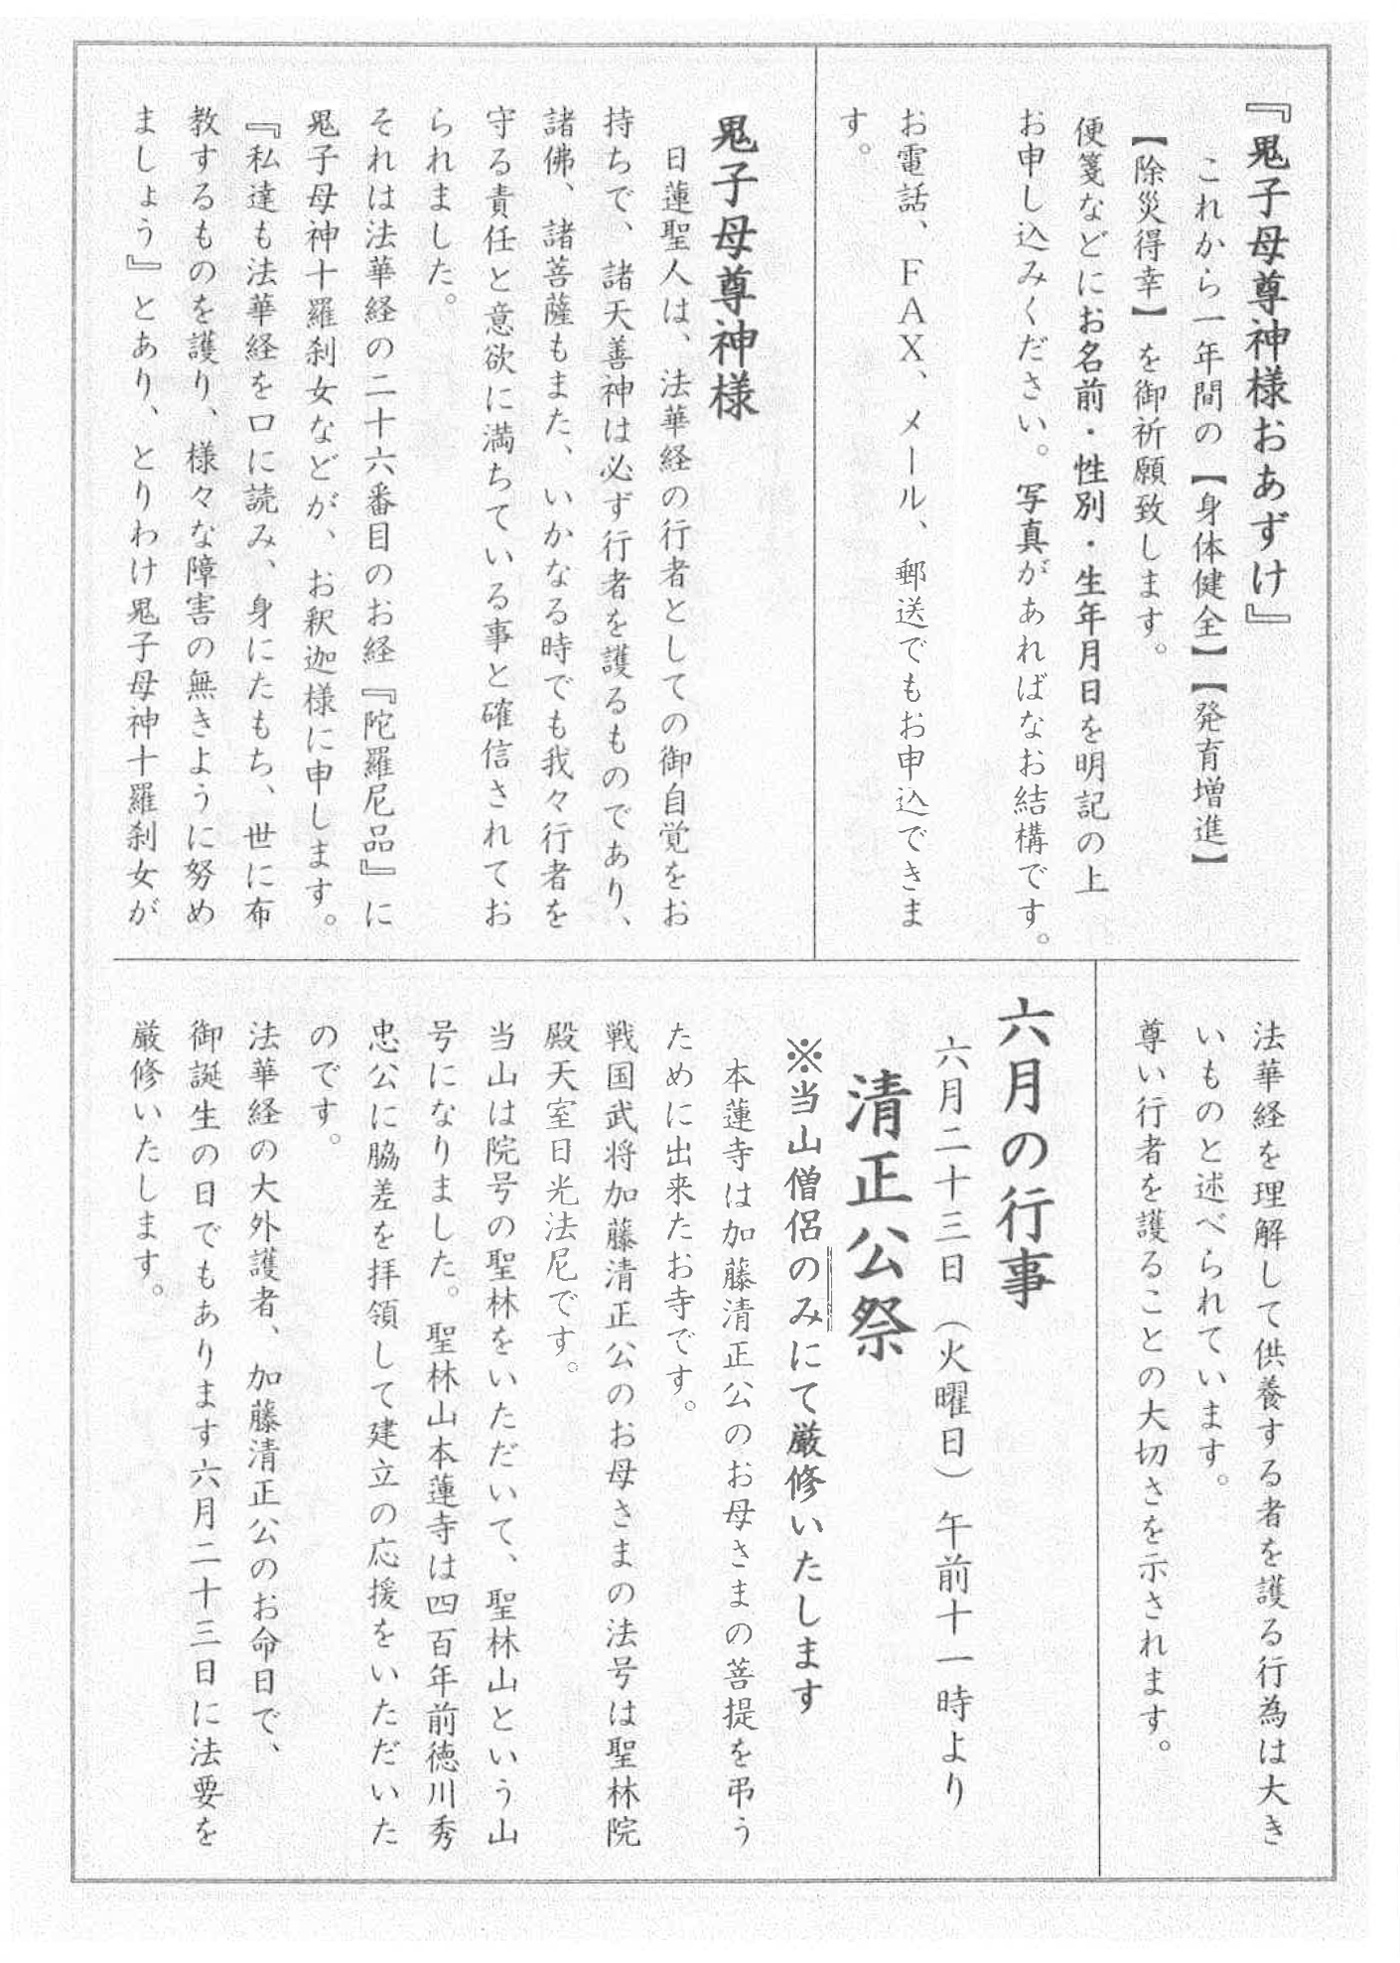 『鬼子母尊神様おあずけ』
これから一年間の【身体健全】【発育増進】
【除災得幸】を御祈願致します。
便箋などにお名前・性別・生年月日を明記の上
お申し込みください。写真があればなお結構です。
お電話、ＦＡＸ、メール、郵送でもお申込できま
す。
鬼子母尊神様
日蓮聖人は、法華経の行者としての御自覚をお
持ちで、諸天善神は必ず行者を護るものであり、
諸佛、諸菩薩もまた、いかなる時でも我々行者を
守る責任と意欲に満ちている事と確信されてお
られました。
それは法華経の二十六番目のお経『陀羅尼品』に
鬼子母神十羅刹女などが、お釈迦様に申します。
『私達も法華経を口に読み、身にたもち、世に布
教するものを護り、様々な障害の無きように努め
ましょう』とあり、とりわけ鬼子母神十羅刹女が
法華経を理解して供養する者を護る行為は大き
いものと述べられています。
尊い行者を護ることの大切さを示されます。
六月の行事
六月二十三日（火曜日）午前十一時より
清正公祭
※当山僧侶のみにて厳修いたします
本蓮寺は加藤清正公のお母さまの菩提を弔う
ために出来たお寺です。
戦国武将加藤清正公のお母さまの法号は聖林院
殿天室日光法尼です。
当山は院号の聖林をいただいて、聖林山という山
号になりました。聖林山本蓮寺は四百年前徳川秀
忠公に脇差を拝領して建立の応援をいただいた
のです。
法華経の大外護者、加藤清正公のお命日で、
御誕生の日でもあります六月二十三日に法要を
厳修いたします。